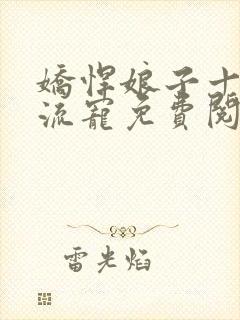 嬌悍娘子十
流寵免費閱
雷光焰